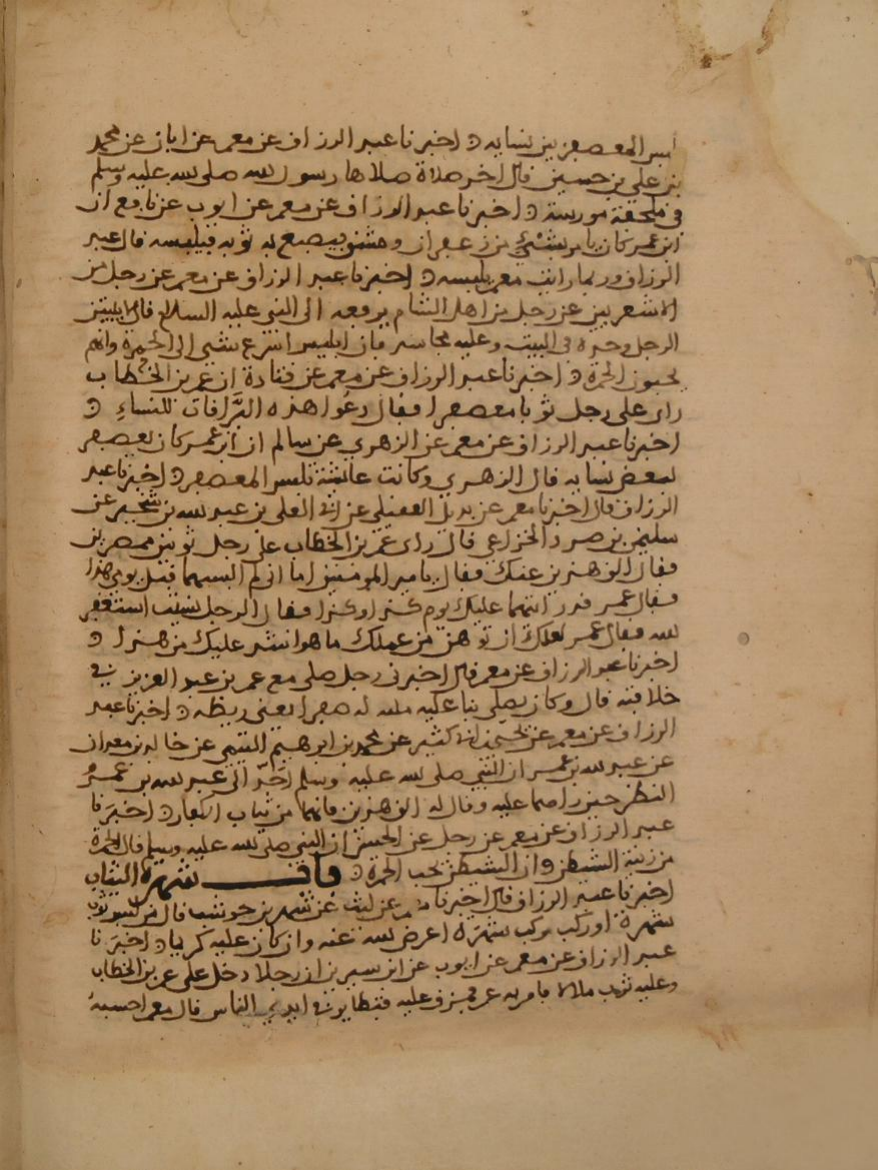 المعصفر بين نسايه اخبرنا عبد الرزاق عن معمر عن ابان عن محمد
بن علي بن حسين قال اخر صلاة صلاها رسول الله صلى الله عليه وسلم
في ملحفة مورسة اخبرنا عبد الرزاق عن معمر عن ايوب عن نافع ان
ابن عمر كان يامر بشي من زعفران ومشق فيصبغ به ثوبه فيلبسه قال عبد
الرزاق وربما رايت معمر يلبسه اخبرنا عبد الرزاق عن معمر عن رجل من
الاشعريين عن رجل من اهل الشام يرفعه الى النبي عليه السلام قال
الرجل وحده في البيت وعليه مجاسد فان ابليس اسرع شي الى الحمرة وانهم
يحبون الحمرة اخبرنا عبد الرزاق عن معمر عن قتادة ان عمر بن الخطاب
راى على رجل ثوبا معصفرا فقال دعوا هذه البراقات للنساء
اخبرنا عبد الرزاق عن معمر عن الزهري عن سالم ان ابن عمر كان يعصفر
لبعض نسايه قال الزهري وكانت عائشة تلبس المعصفر اخبرنا عبد
الرزاق قال اخبرنا معمر عن بديل العقيلي عن ابي العلى بن عبد الله بن شخير عن
سليمن بن صرد الخزاعي قال راى عمر بن الخطاب على رجل ثوبين ممصرين
فقال الق هذين عنك فقال يا امير المومنين اما اني لم البسهما قبل يومي هذا
فقال عمر قد رايتهما عليك يوم كذا وكذا فقال الرجل نسيت استغفر
الله فقال عمر لعلك ان توهن من عملك ما هو اشد عليك من هذا
اخبرنا عبد الرزاق عن معمر قال اخبرني رجل صلى مع عمر بن عبد العزيز في
خلافته قال وكان يصلي بنا عليه ملاه له صفرا يعني ريطه اخبرنا عبد
الرزاق عن معمر عن يحيى بن ابي كثير عن محمد بن ابرهيم التيمي عن خالد بن معدان
عن عبد الله بن عمر ان النبي صلى الله عليه وسلم احد الى عبد الله بن عمر
النظر حين راهما عليه وقال له الق هذين فانهما من ثياب الكفار اخبرنا
عبد الرزاق عن معمر عن رجل عن الحسن ان النبي صلى الله عليه وسلم قال الحمرة
من زينة الشيطن وان الشيطن يحب الحمرة باب شهرة الثياب
اخبرنا عبد الرزاق قال اخبرنا معمر عن ليث عن شهر بن حوشب قال من لبس ثوب
شهرة او ركب مركب شهرة اعرض الله عنه وان كان عليه كريما اخبرنا
عبد الرزاق عن معمر عن ايوب عن ابن سيرين ان رجلا دخل على عمر بن الخطاب
وعليه ثوب ملالا فامر به عمر فمزق عليه فتطاير في ايدي الناس قال معمر احسبه